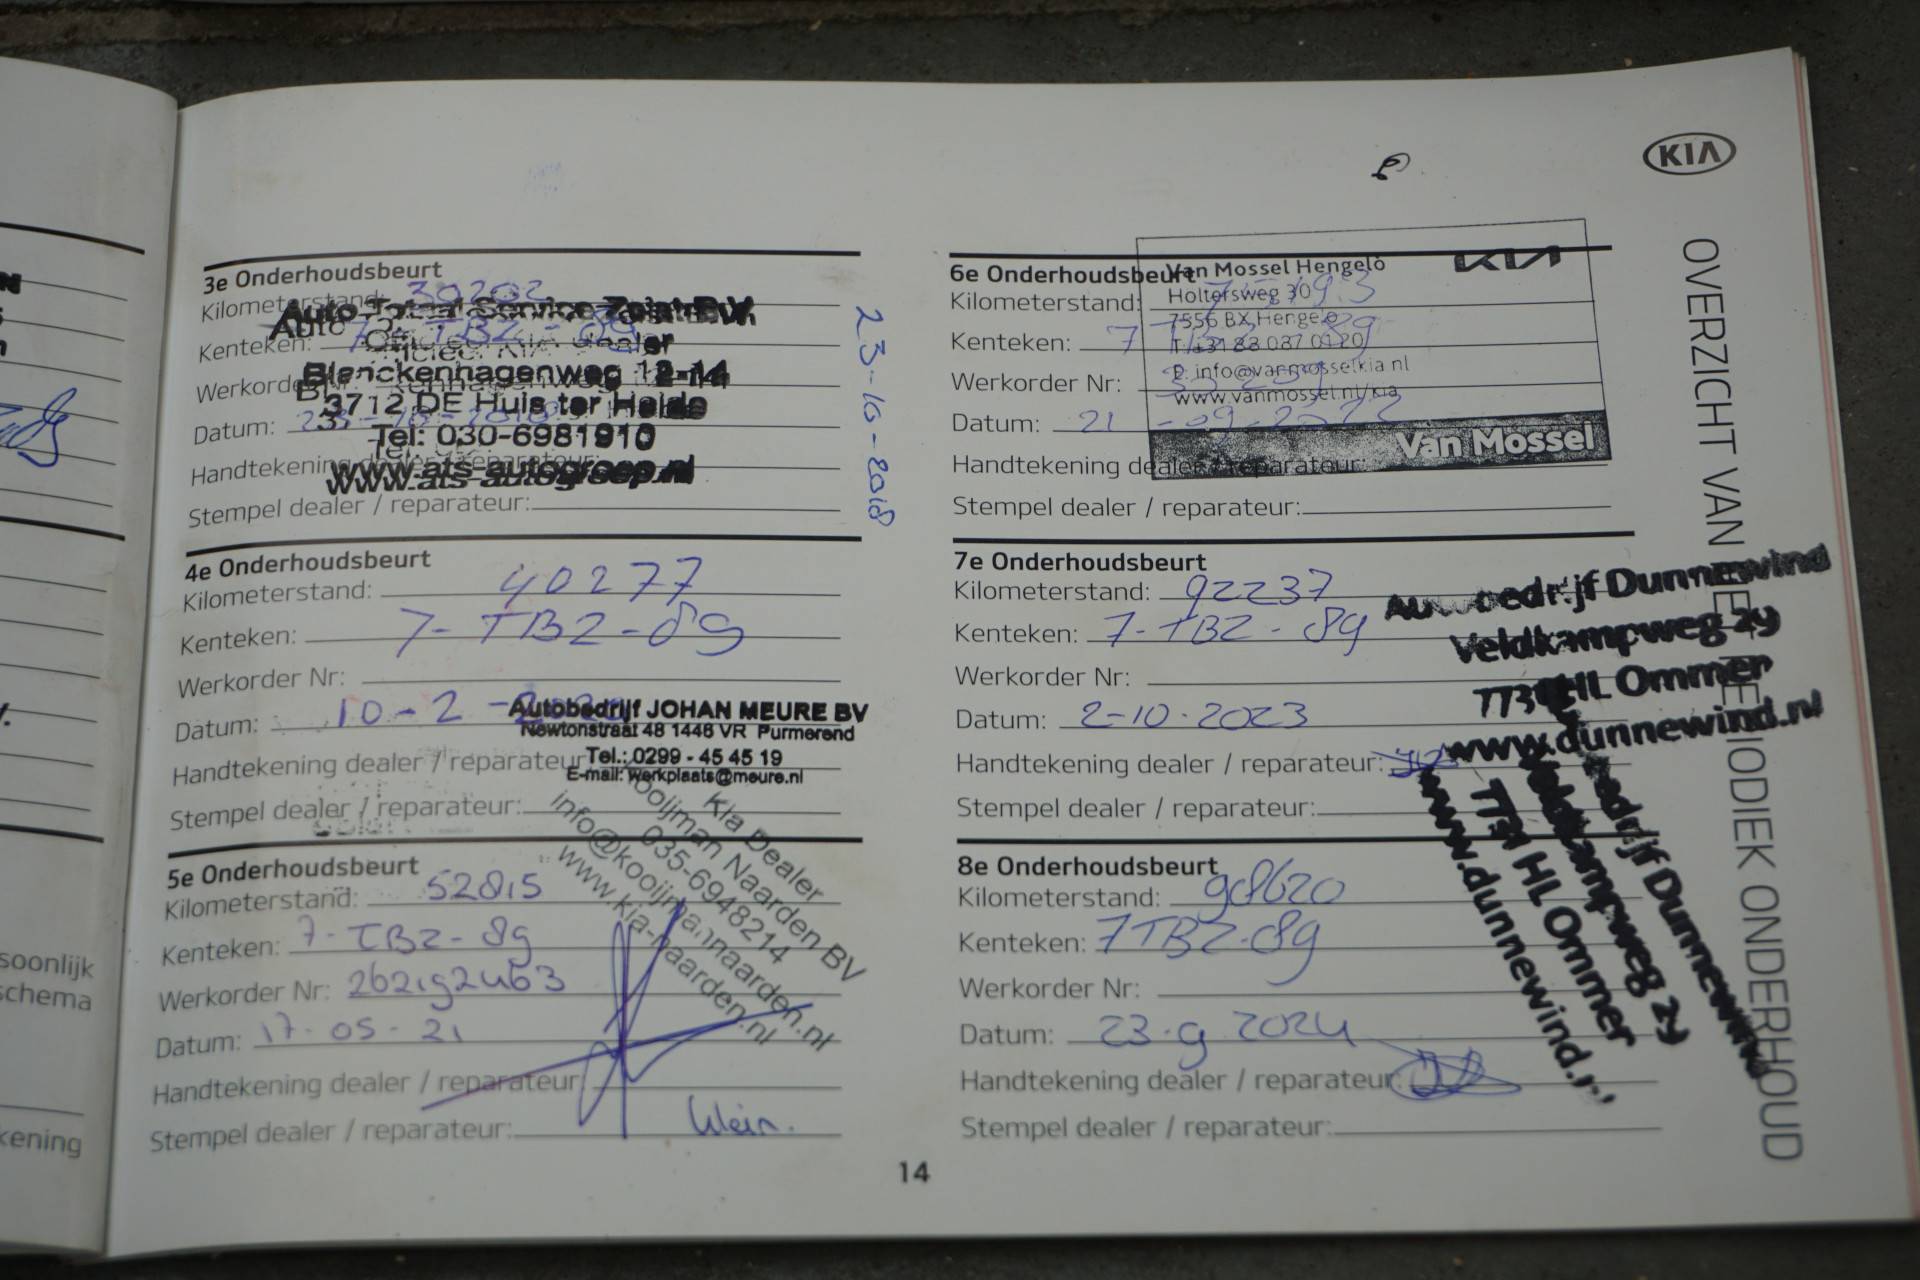 KIA
OVERZICHT VAN
IODIEK ONDERHOUD
3e Onderhoudsbeurt
Kilometerstand: 30202
Kenteken: 7-TBZ-89
Datum: 23-10-2018
Handtekening dealer / reparateur:
Stempel dealer / reparateur:
Auto Totaal Service Zeist B.V.
Officieel KIA dealer
Blanckenhagenweg 12-14
3712 DE Huis ter Heide
Tel: 030-6981910
www.ats-autogroep.nl
23-10-2018
4e Onderhoudsbeurt
Kilometerstand: 40277
Kenteken: 7-TBZ-89
Werkorder Nr:
Datum: 10-2-2020
Handtekening dealer / reparateur
Stempel dealer / reparateur:
Autobedrijf JOHAN MEURE BV
Newtonstraat 48 1446 VR Purmerend
Tel.: 0299 - 45 45 19
E-mail: werkplaats@meure.nl
5e Onderhoudsbeurt
Kilometerstand: 52815
Kenteken: 7-TBZ-89
Werkorder Nr: 262192463
Datum: 17-05-21
Handtekening dealer / reparateur
Stempel dealer / reparateur:
Kia Dealer
Kooijman Naarden BV
035-6948214
info@kooijmannaarden.nl
www.kia-naarden.nl
6e Onderhoudsbeurt
Kilometerstand:
Kenteken: 7
Werkorder Nr:
Datum: 21-09-2022
Handtekening dealer / reparateur:
Stempel dealer / reparateur:
KIA
Van Mossel Hengelo
Holtersweg 30
7556 BX Hengelo
T. +31 88 087 0120
E. info@vanmosselkia.nl
www.vanmossel.nl/kia
Van Mossel
7e Onderhoudsbeurt
Kilometerstand: 92237
Kenteken: 7-TBZ-89
Werkorder Nr:
Datum: 2-10-2023
Handtekening dealer / reparateur:
Stempel dealer / reparateur:
Autobedrijf Dunnewind
Veldkampweg 2y
7731 HL Ommen
www.dunnewind.nl
8e Onderhoudsbeurt
Kilometerstand: 98620
Kenteken: 7TBZ-89
Werkorder Nr:
Datum: 23-9 2024
Handtekening dealer / reparateur:
Stempel dealer / reparateur:
edrijf Dunnewind
Veldkampweg 2y
7731 HL Ommen
www.dunnewind.nl
14
soonlijk
schema
kening